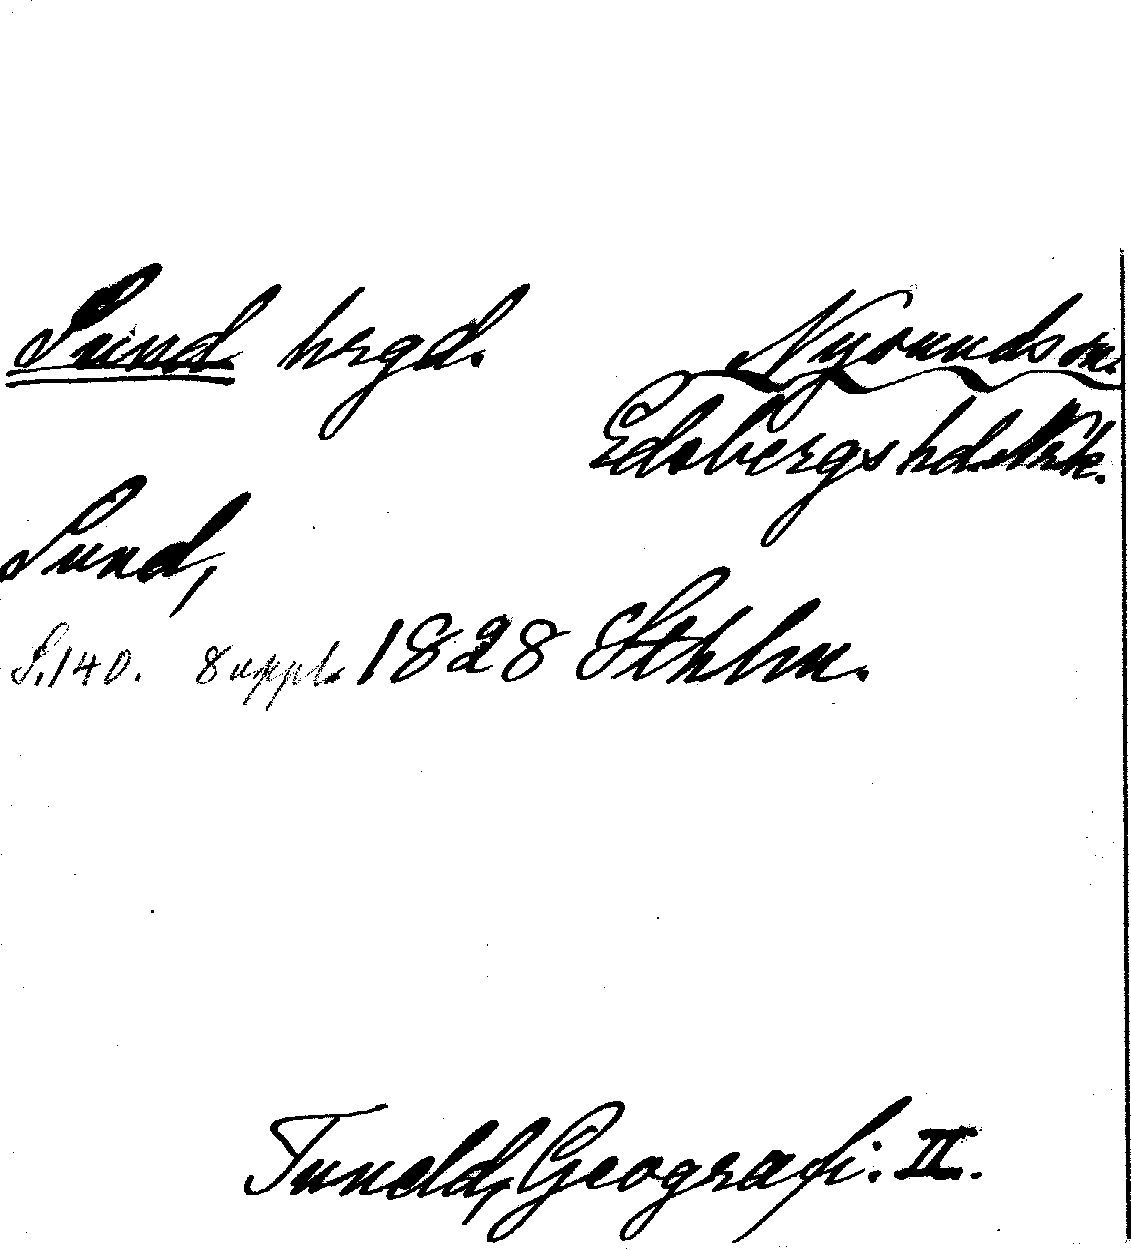 Sund hrgd. Nysunds sn.
Edsbergs hd. Närke.
Sund,
S. 140. 8 uppl. 1828 Sthlm.
Tuneld, Geografi. II.